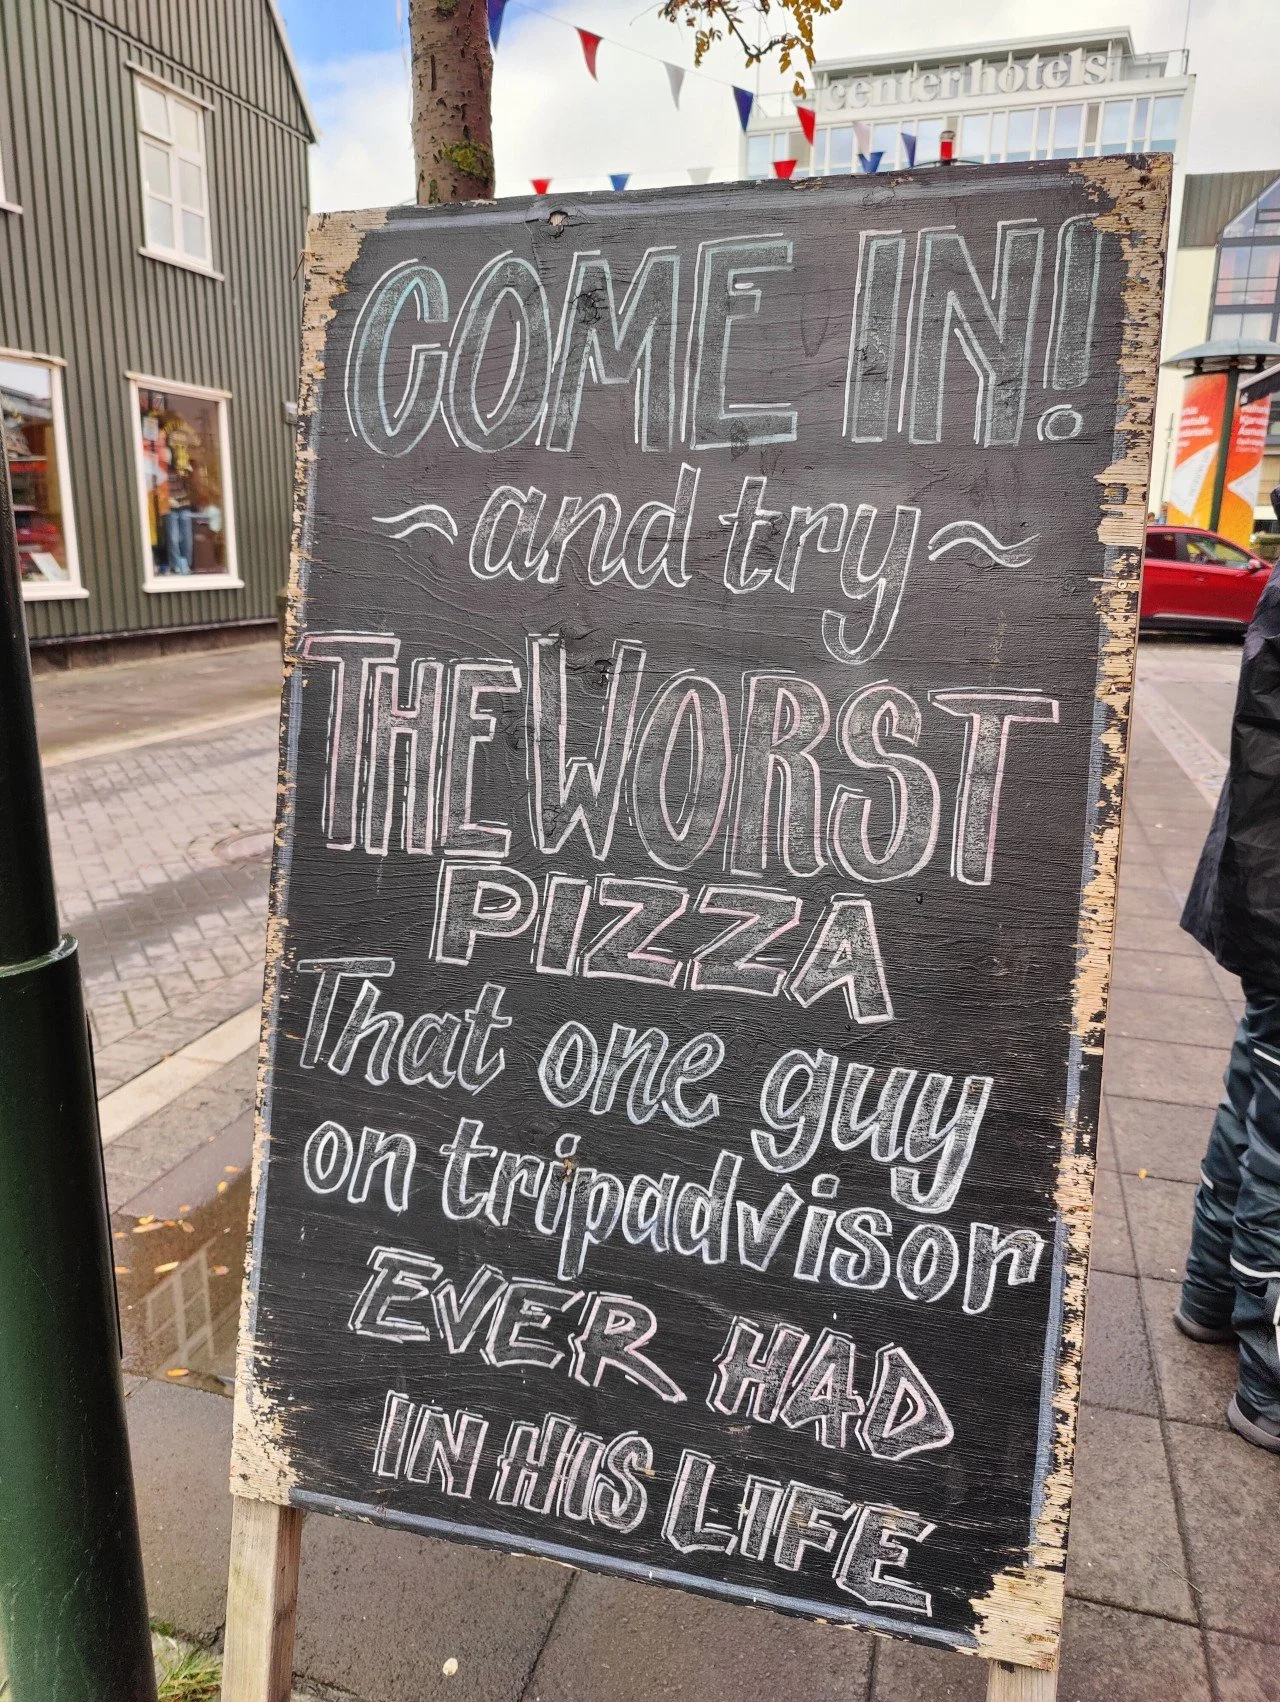 centerhotels
COME IN!
~and try~
THE WORST
PIZZA
That one guy
on tripadvisor
EVER HAD
IN HIS LIFE